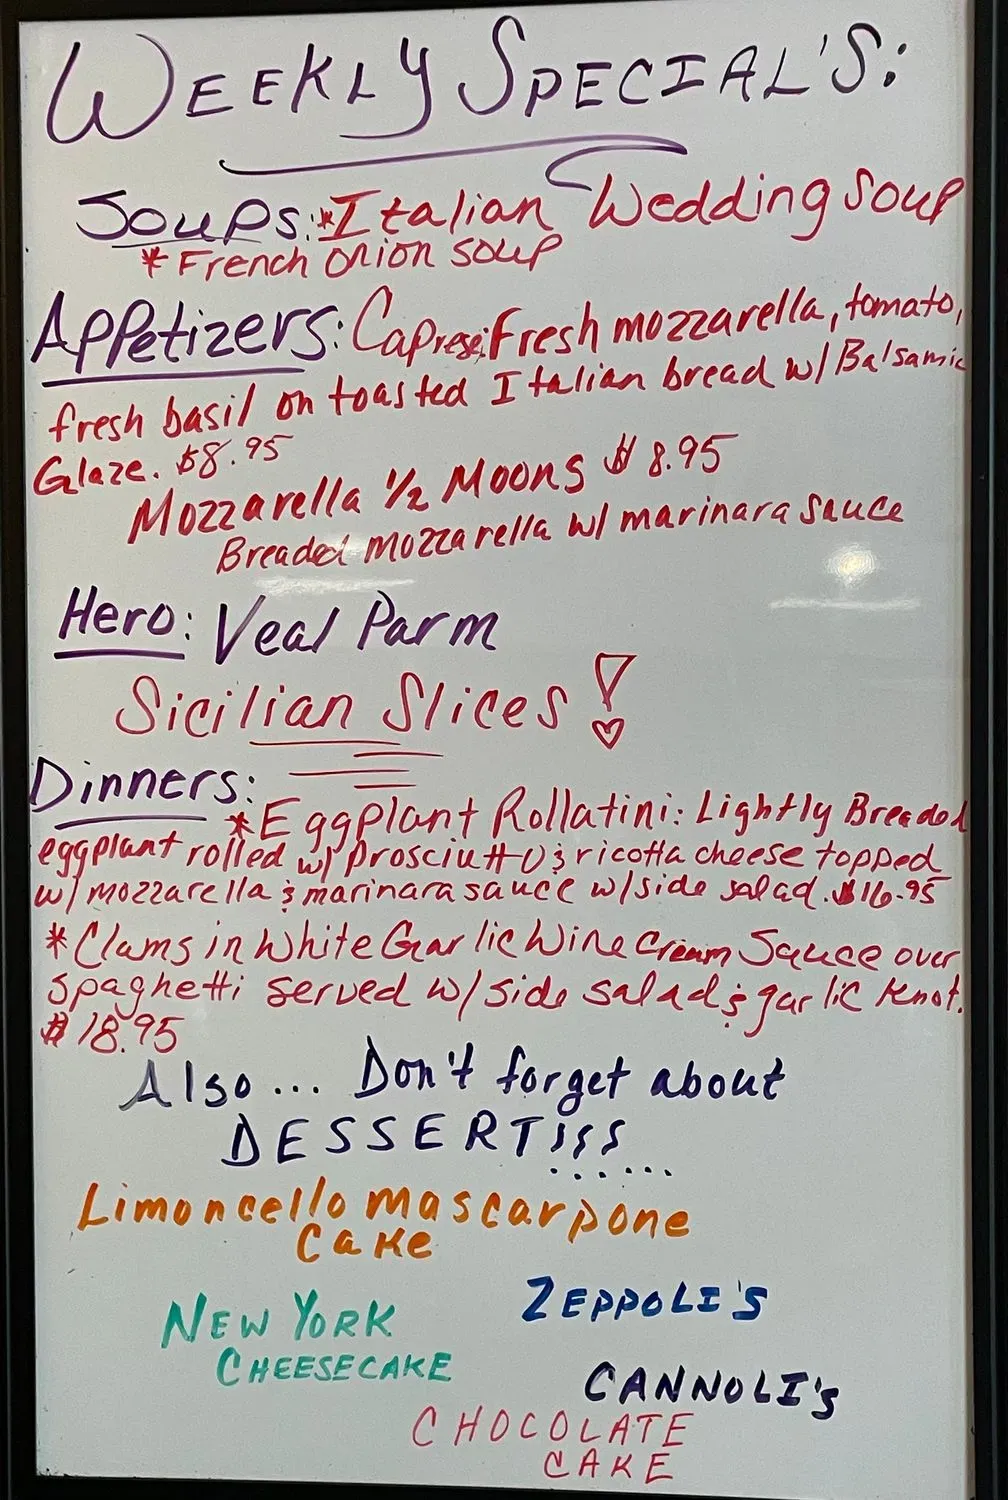 WEEKLY SPECIAL'S:
Soups: *Italian Wedding soup
*French onion soup
Appetizers: Caprese: Fresh mozzarella, tomato,
fresh basil on toasted Italian bread w/ Balsamic
Glaze. $8.95
Mozzarella 1/2 Moons $8.95
Breaded mozzarella w/ marinara sauce
Hero: Veal Parm
Sicilian Slices!
Dinners:
*Eggplant Rollatini: Lightly Breaded
eggplant rolled w/ prosciutto & ricotta cheese topped
w/ mozzarella & marinara sauce w/ side salad. $16.95
*Clams in White Garlic Wine Cream Sauce over
Spaghetti served w/ side salad & garlic knot.
$18.95
Also... Don't forget about
DESSERT!!!......
Limoncello mascarpone
Cake
ZEPPOLI'S
NEW YORK
CHEESECAKE
CANNOLI'S
CHOCOLATE
CAKE